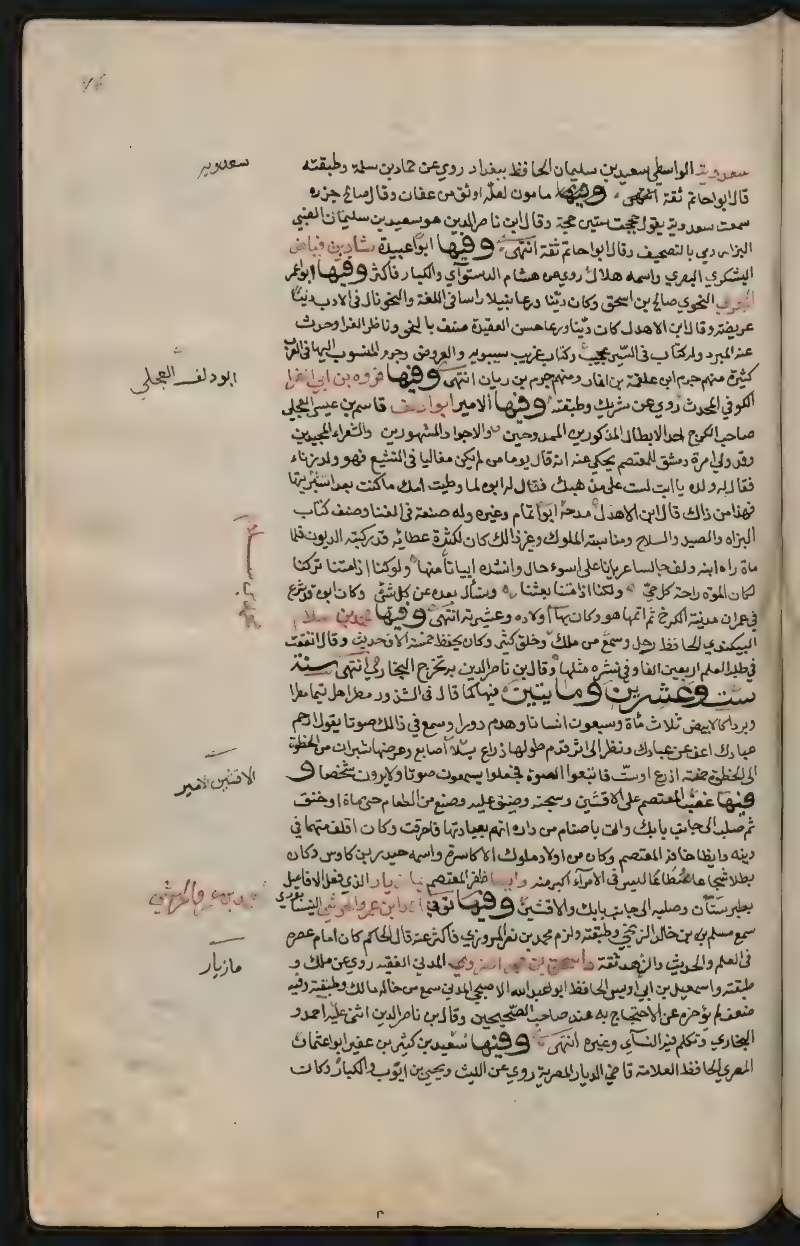 سعدويه
سعدويه الواسطي سعيد بن سليمان الحافظ ببغداد روي عن حماد بن سلمة وطبقته
قال ابو حاتم ثقة انتهى وفيها مامون لعله اوثق من عفان وقال صالح جزره
سمعت سعدويه يقول حججت ستين حجة وقال ابن ناصر الدين هو سعيد بن سليمان الضبي
البزاز رمي بالتصحيف وقال ابو حاتم ثقة انتهى وفيها ابو عبيدة شاد بن فياض
اليشكري البصري واسمه هلال روي عن هشام الدستوآي والكبار فاكثر وفيها ابو عمر
الجرمي النحوي صالح بن اسحق وكان دينا ورعا نبيلا راسا في اللغة والنحو نال في الادب دنيا
عريضة وقال ابن الاهدل كان دينا ورعا حسن العقيدة صنف بالنحو وناظر الفرا وحدث
عنه المبرد وله كتاب في السير عجيب وكتاب غريب سيبويه والعروض وجرم المنسوب اليها في العرب
ابو دلف العجلي
كثيرة منهم جرم ابن علقة بن انمار ومنهم جرم بن ربان انتهى وفيها فروه بن ابي المغرا
الكوفي المحدث روي عن شريك وطبقته وفيها الامير ابو دلف قاسم بن عيسى العجلي
صاحب الكرج احد الابطال المذكورين الممدوحين والاجواد المشهورين والشعراء المجيدين
وقد ولي امرة دمشق للمعتصم يحكي عنه انه قال يوما من لم يكن مغاليا في التشيع فهو ولد زناء
فقال له ولده يا ابت لست على مذهبك فقال له ابوه لما وطيت امك ما كنت بعد استبريتها
فهذا من ذاك قال ابن الاهدل مدحه ابو تمام وغيره وله صنعة في الغنا وصنف كتاب
البزاه والصيد والسلاح وسياسة الملوك وغير ذالك كان لكثرة عطائه قد ركبته الديون فلما
مات راه ابنه دلف جالسا عريانا على اسوء حال وانشده ابياتا منها ولو كنا اذا متنا تركنا
لكان الموت راحة كل حي ولكنا اذا متنا بعثنا ونسأل بعده عن كل شي وكان ابوه قد شرع
في عمران مدينة الكرخ ثم اتمها هو وكان بها اولاده وعشيرته انتهى وفيها محمد بن سلام
محمد بن سلام
البيكندي الحافظ رحل وسمع من مالك وخلق كثير وكان يحفظ خمسة الاف حديث وقال انفقت
في طلب العلم اربعين الفا وفي نشره مثلها وقال بن ناصر الدين به تخرج البخاري انتهى سنة
ست وعشرين ومايتين فيها كما قال في الشذور مطر اهل تيما مطرا
وبردا كالبيض ثلاث مأة وسبعون انسانا وهدم دورا وسمع في ذالك صوتا يقول ارحم
عبادك اعف عن عبادك ونظر الى اثر قدم طولها ذراع بلا اصابع وعرضها شبران من الخطوة
الى الخطوة خمسة اذرع او ست فاتبعوا الصوت فجعلوا يسمعون صوتا ولا يرون شخصا و
الافشين الامير
فيها غضب المعتصم على الافشين وسجنه وضيق عليه ومنع من الطعام حتى مات او خنق
ثم صلب الى جانب بابك واتى باصنام من داره اتهم بعبادتها فاحرقت وكان اقلف متهما في
دينه وايظا خافه المعتصم وكان من اولاد ملوك الاكاسرة واسمه حيدر بن كاوس وكان
بطلا شجاعا مطاعا ليس في الامراء اكبر منه وايضا ظفر المعتصم بمازيار الذي فعل الافاعيل
بطبرستان وصلبه الى جانب بابك والافشين وفيها توفي احمد بن عمرو الحرشي النيسابوري
سمع مسلم بن خالد الزنجي وطبقته ولزم محمد بن نصر المروزي فاكثر عنه قال الحاكم كان امام عصره
مازيار
في العلم والحديث والزهد ثقة واسحق بن محمد الفروي المدني الفقيه روي عن ملك و
طبقته واسمعيل بن ابي اويس الحافظ ابو عبد الله الاصبحي المدني سمع من خاله مالك وطبقته وفيه
ضعف لم يؤخره عن الاحتجاج به عند صاحب الصحيحين وقال بن ناصر الدين اثنى عليه احمد و
البخاري وتكلم فيه النسآي وغيره انتهى وفيها سعيد بن كثير بن عفير ابو عثمان
المصري الحافظ العلامة قاضي الديار المصرية روي عن الليث ويحيى بن ايوب والكبار وكان